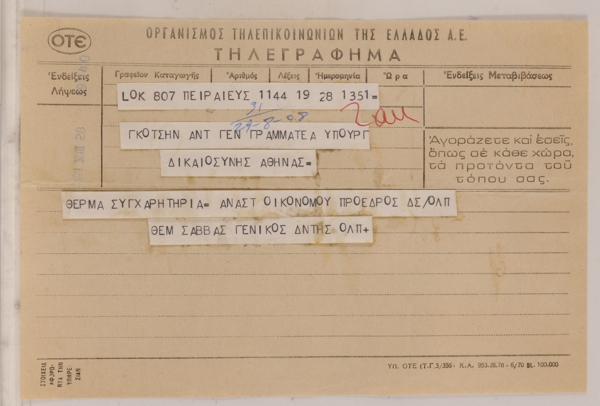 ΟΤΕ
ΟΡΓΑΝΙΣΜΟΣ ΤΗΛΕΠΙΚΟΙΝΩΝΙΩΝ ΤΗΣ ΕΛΛΑΔΟΣ Α.Ε.
ΤΗΛΕΓΡΑΦΗΜΑ
Ἐνδείξεις Λήψεως
Γραφεῖον Καταγωγῆς Ἀριθμὸς Λέξεις Ἡμερομηνία Ὥρα Ἐνδείξεις Μεταβιβάσεως
LOK 807 ΠΕΙΡΑΙΕΥΣ 1144 19 28 1351=
ΓΚΟΤΣΗΝ ΑΝΤ ΓΕΝ ΓΡΑΜΜΑΤΕΑ ΥΠΟΥΡΓ
ΔΙΚΑΙΟΣΥΝΗΣ ΑΘΗΝΑΣ=
Ἀγοράζετε καί ἐσεῖς,
ὅπως σέ κάθε χώρα,
τά προτόντα τοῦ
τόπου σας.
ΘΕΡΜΑ ΣΥΓΧΑΡΗΤΗΡΙΑ= ΑΝΑΣΤ ΟΙΚΟΝΟΜΟΥ ΠΡΟΕΔΡΟΣ ΔΣ/ΟΛΠ
ΘΕΜ ΣΑΒΒΑΣ ΓΕΝΙΚΟΣ ΔΝΤΗΣ ΟΛΠ+
ΣΤΟΙΧΕΙΑ
ΑΦΟΡΩ-
ΝΤΑ ΤΗΝ
ΥΠΗΡΕ
ΣΙΑΝ
ΥΠ. ΟΤΕ (Τ.Γ.3/336) - Κ.Α. 953.28.70 - 6/70 ΒΙ. 100.000